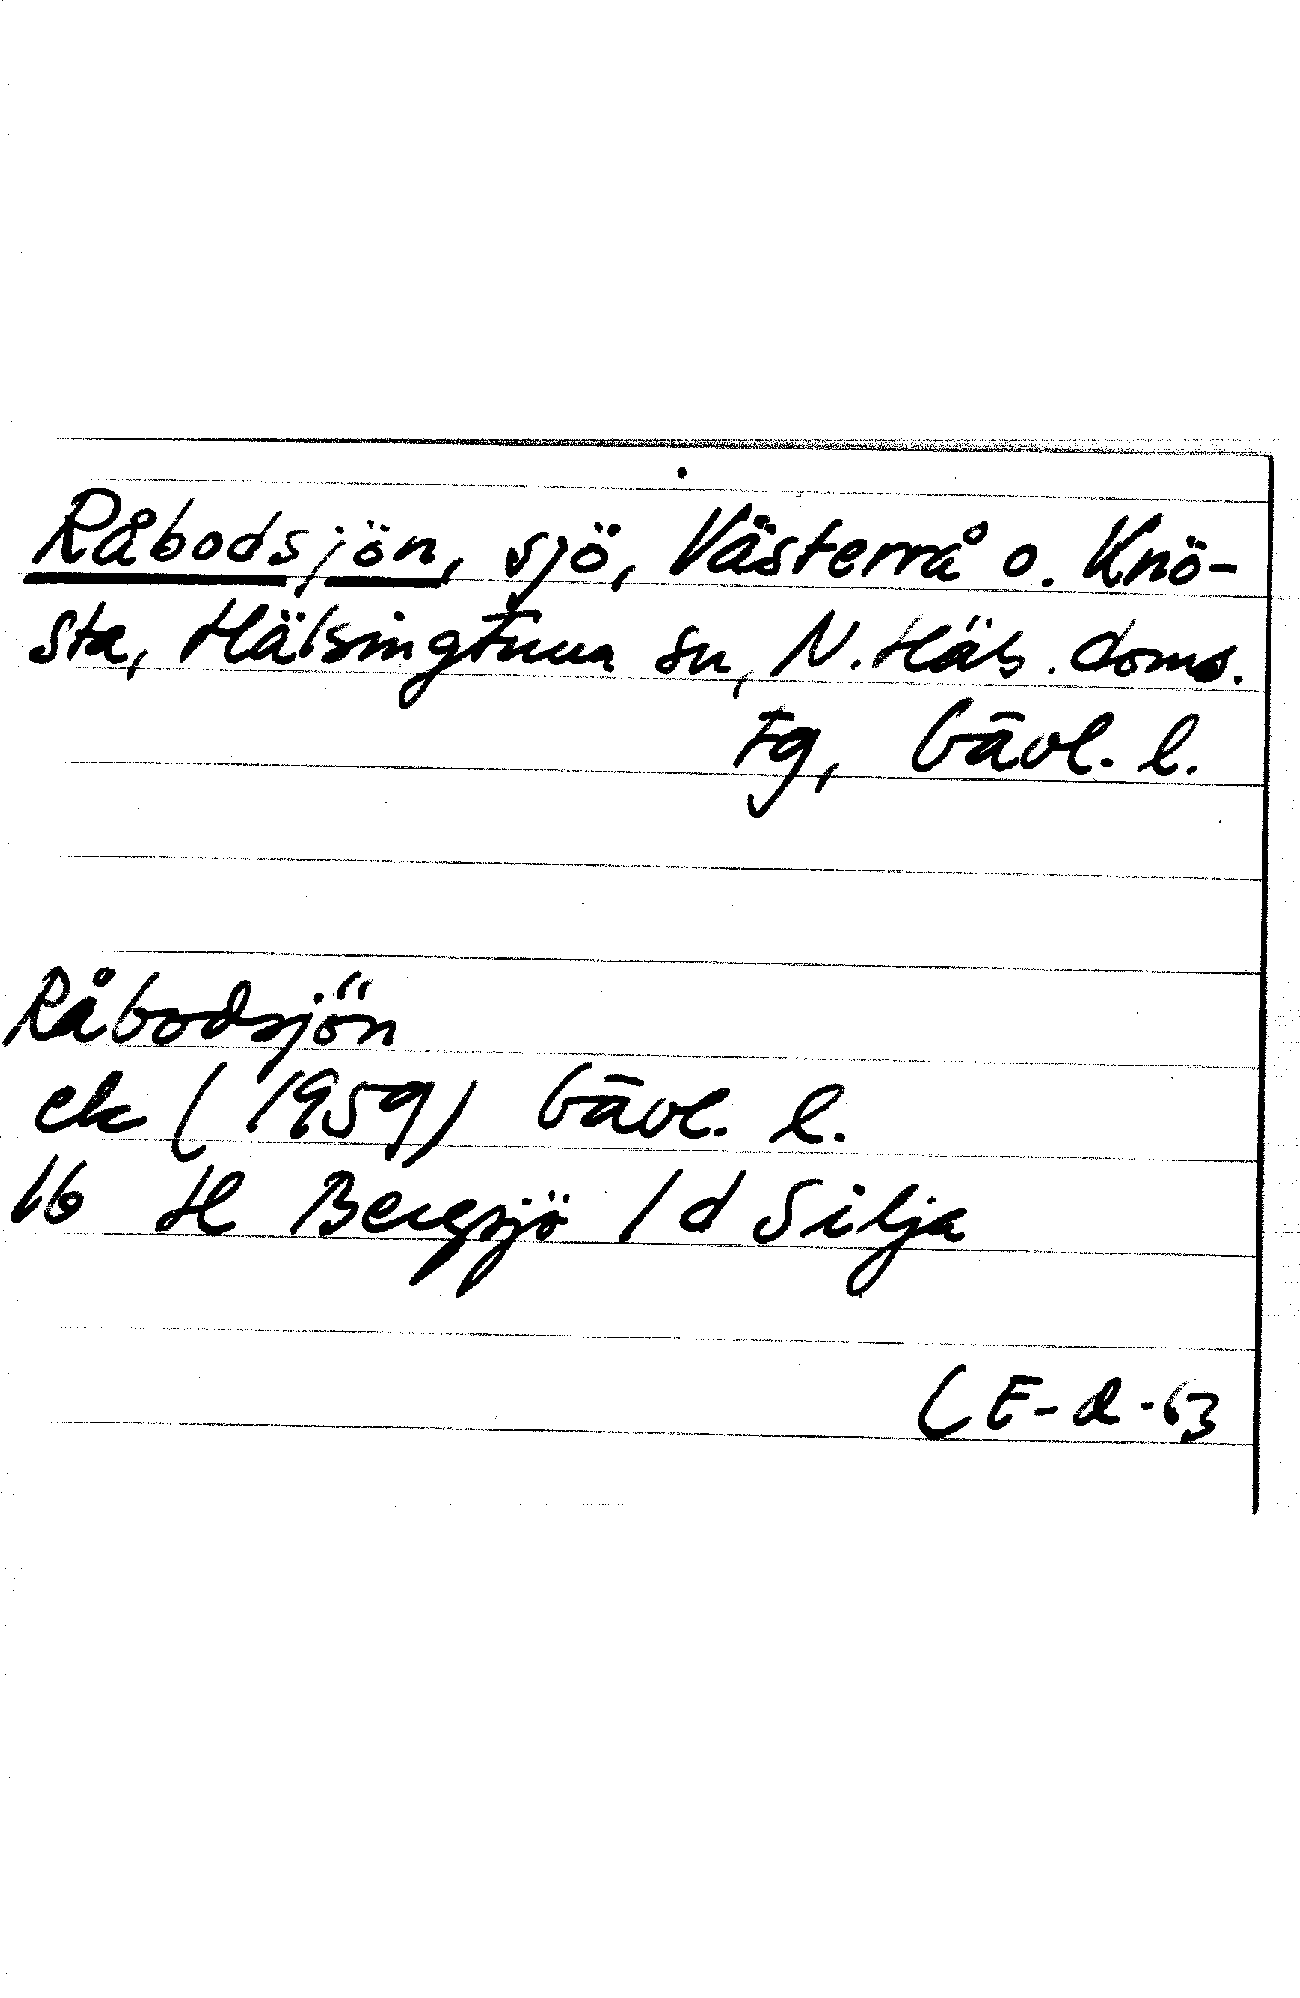 Råbodsjön, sjö, Västerrå o. Knö-
sta, Hälsingtuna sn, N. Häls. doms.
Fg, Gävl. l.
Råbodsjön
ek (1959) Gävl. l.
16 H Bergsjö 1d Silja
CE-d-63